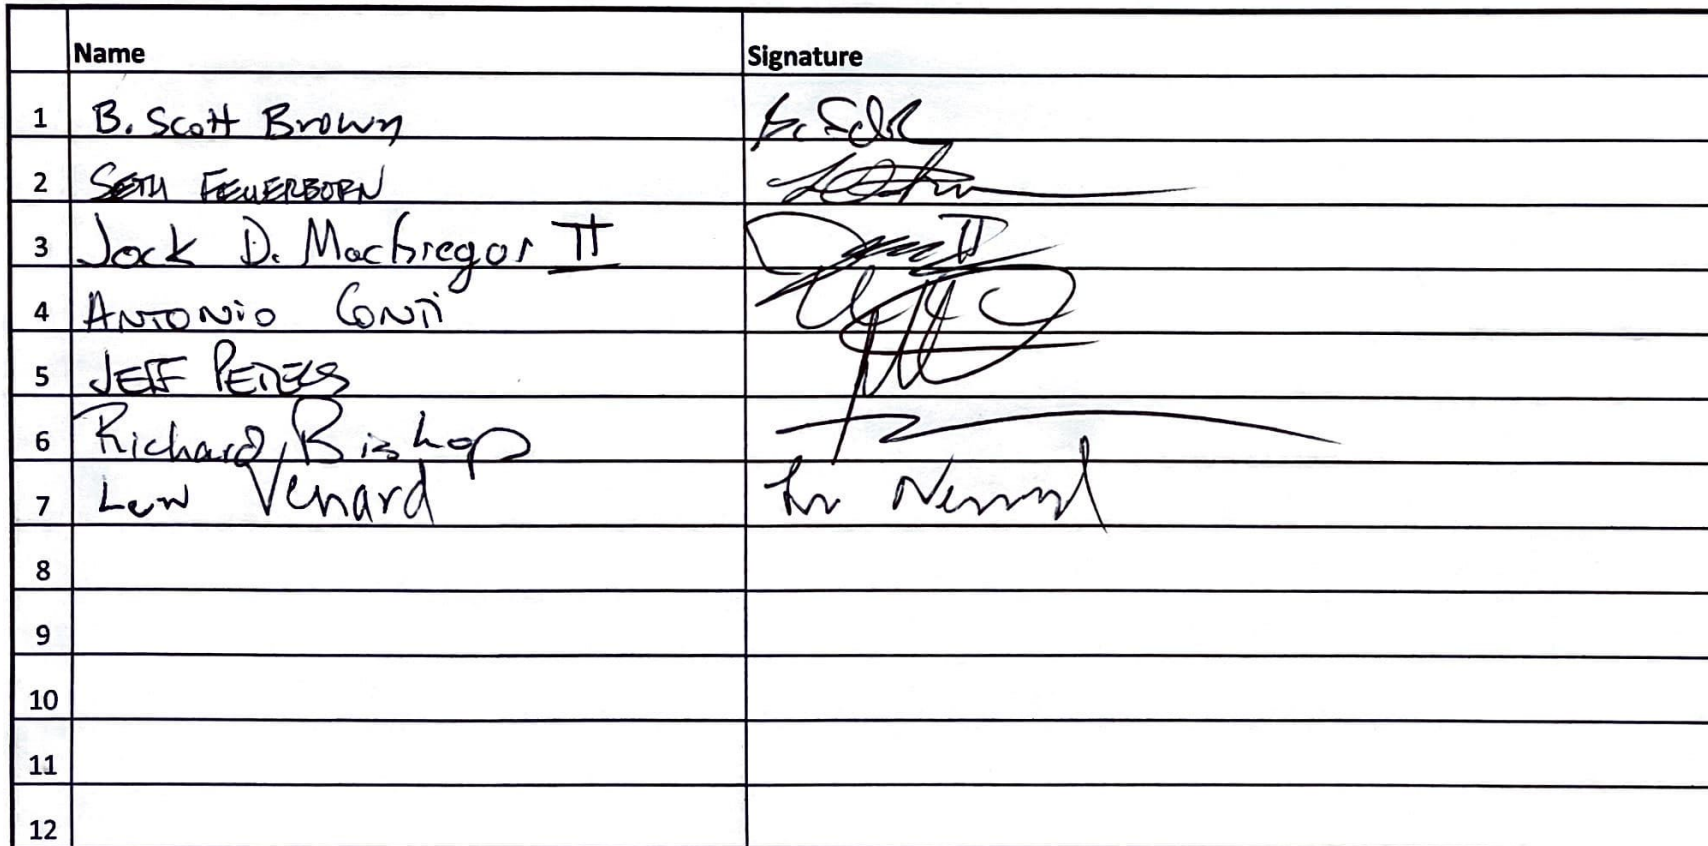 Name Signature
1 B. Scott Brown
2 SETH FEUERBORN
3 Jock D. MacGregor II
4 ANTONIO CONTI
5 JEFF PETERS
6 Richard Bishop
7 Lew Venard
8
9
10
11
12